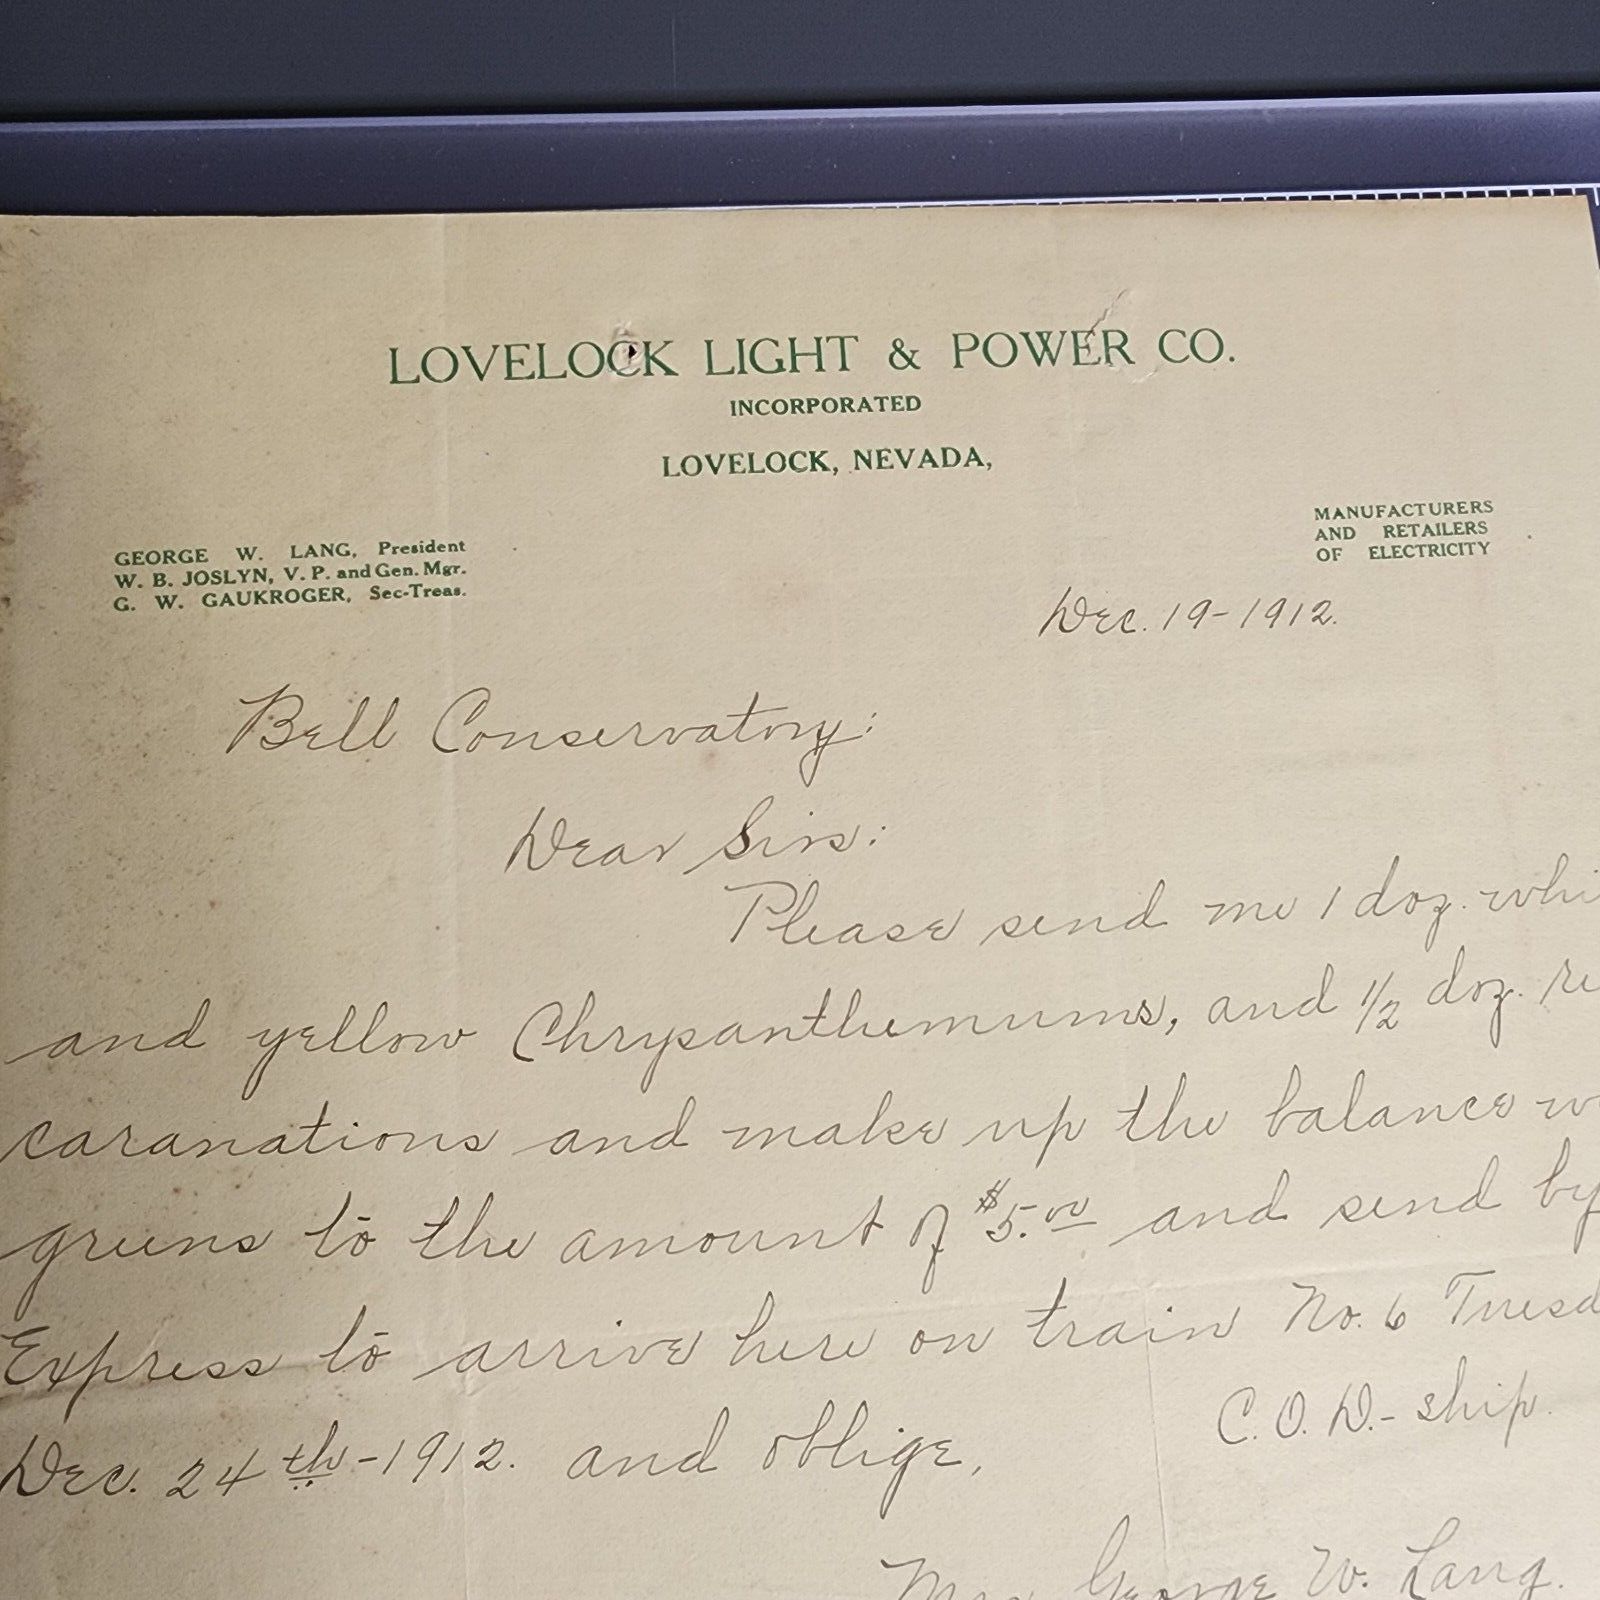 LOVELOCK LIGHT & POWER CO.
INCORPORATED
LOVELOCK, NEVADA,
MANUFACTURERS
AND RETAILERS
OF ELECTRICITY
GEORGE W. LANG, President
W. B. JOSLYN, V. P. and Gen. Mgr.
G. W. GAUKROGER, Sec-Treas.
Dec. 19-1912.
Bell Conservatory:
Dear Sirs:
Please send me 1 doz. whi
and yellow Chrysanthemums, and 1/2 doz. re
caranations and make up the balance w
greens to the amount of $5.00 and send by
Express to arrive here on train No. 6 Tuesd
Dec. 24th-1912. and oblige,
C. O. D.- ship.
George W. Lang.